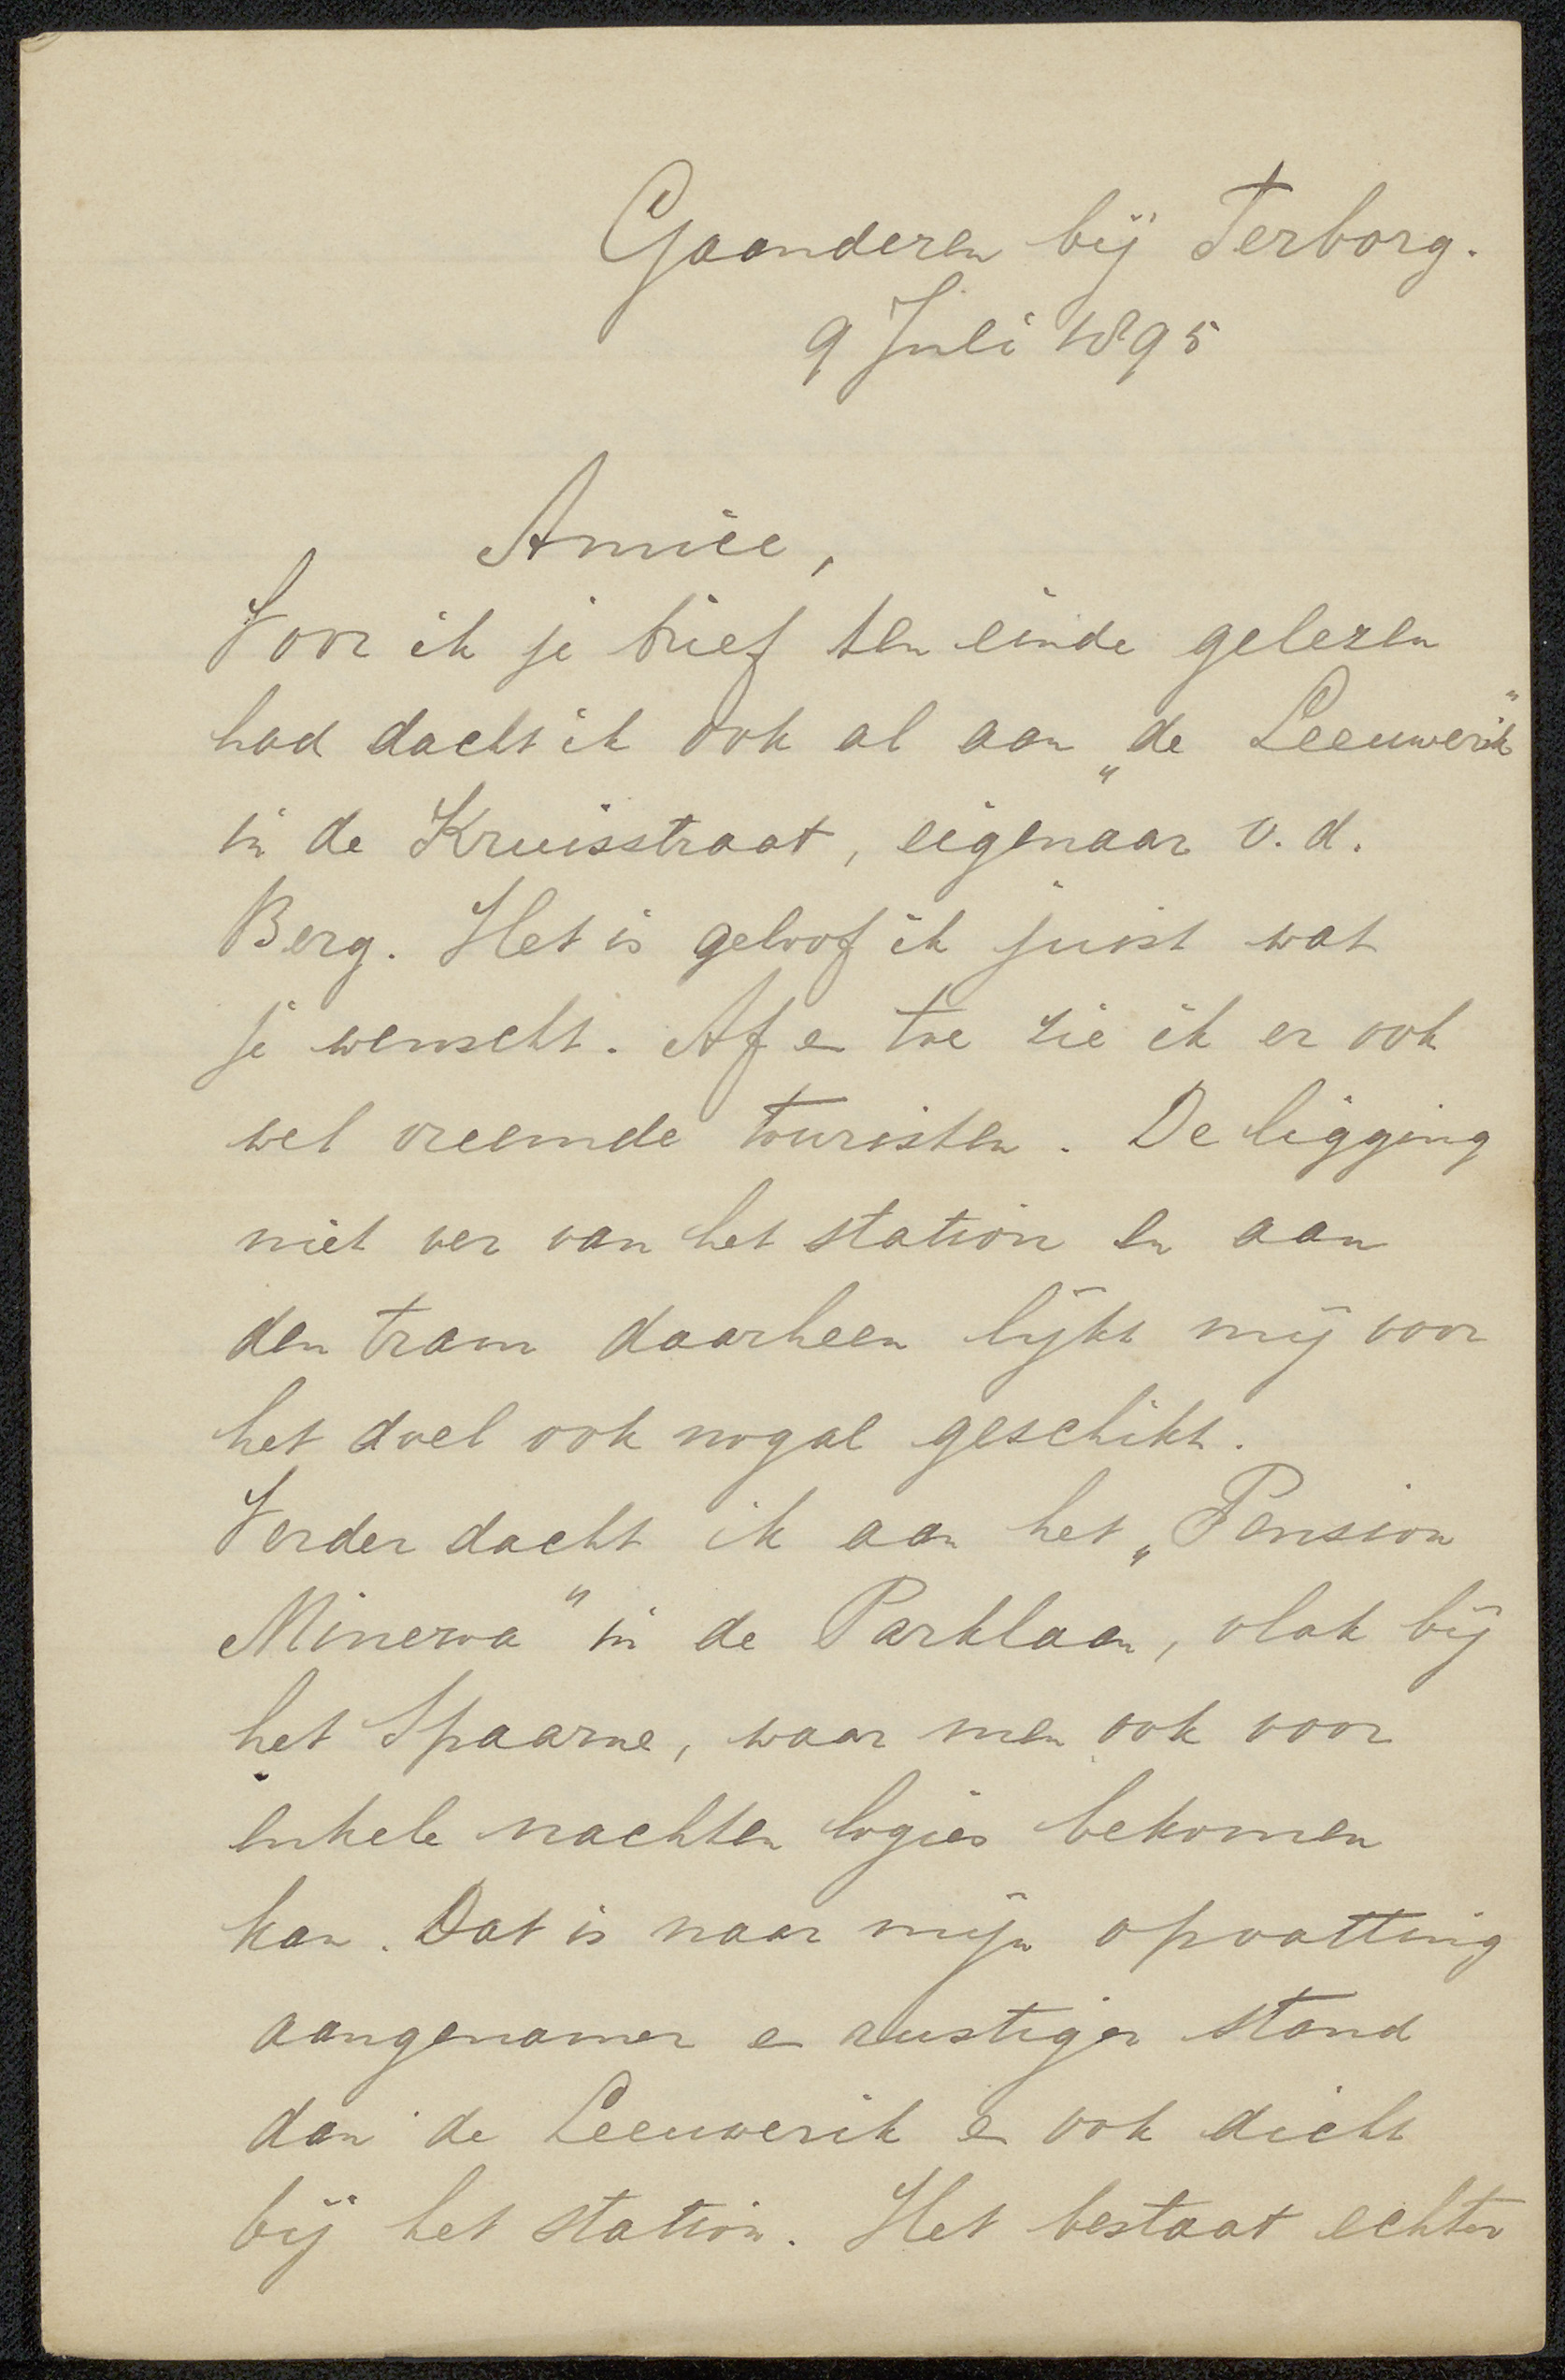 Gaanderen bij Terborg.
9 Juli 1895
Amice,
Voor ik je brief ten einde gelezen
had dacht ik ook al aan „de Leeuwerik"
in de Kruisstraat, eigenaar v. d.
Berg. Het is geloof ik juist wat
je wenscht. Af en toe zie ik er ook
wel vreemde touristen. De ligging
niet ver van het station en aan
den tram daarheen lijkt mij voor
het doel ook nogal geschikt.
Verder dacht ik aan het „Pension
Minerva" in de Parklaan, vlak bij
het Spaarne, waar men ook voor
enkele nachten logies bekomen
kan. Dat is naar mijn opvatting
aangenamer en rustiger stand
dan de Leeuwerik en ook dicht
bij het station. Het bestaat echter